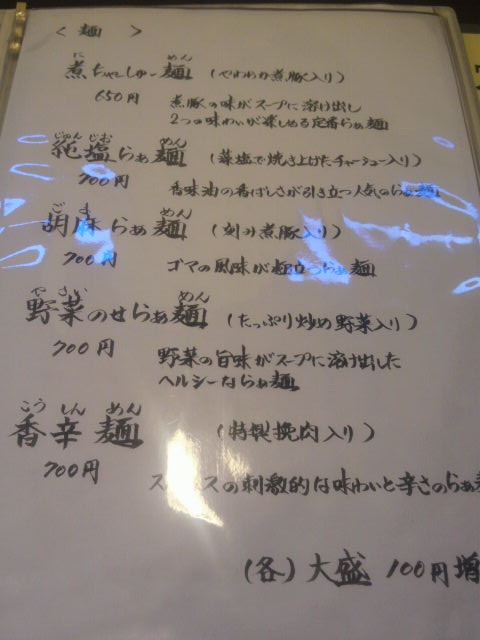 ＜ 麺 ＞
に めん
煮ちゃーしゅー麺 (やわらか煮豚入り)
650円 煮豚の味がスープに溶け出し
2つの味わいが楽しめる定番らぁ麺
じゅん じお めん
純塩らぁ麺 (藻塩で焼き上げたチャーシュー入り)
700円 香味油の香ばしさが引き立つ人気のらぁ麺
ご ま めん
胡麻らぁ麺 (刻み煮豚入り)
700円 ゴマの風味が極立つらぁ麺
や さい めん
野菜のせらぁ麺 (たっぷり炒め野菜入り)
700円 野菜の旨味がスープに溶け出した
ヘルシーならぁ麺
こう しん めん
香辛麺 (特製挽肉入り)
700円 スパイスの刺激的な味わいと辛さのらぁ麺
(各) 大盛 100円増